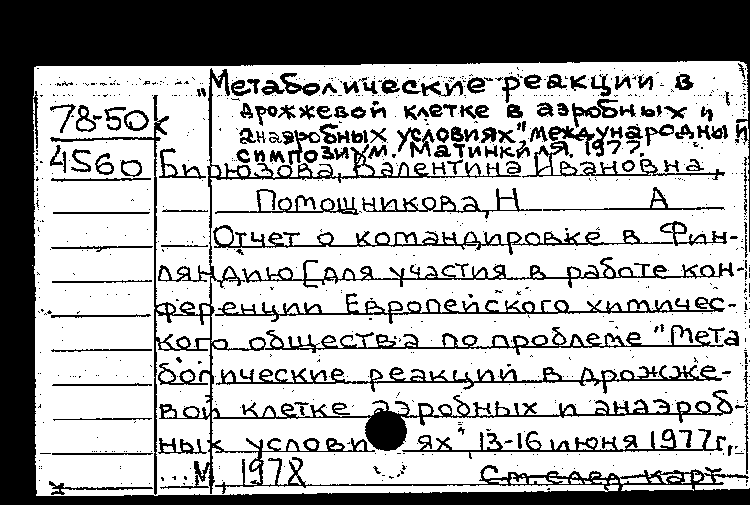 "Метаболические реакции в
78-50к
дрожжевой клетке в аэробных и
анаэробных условиях" международный
симпозиум. Матинкиля, 1977.
4560 Бирюзова, Валентина Ивановна,
Помощникова, Н А
Отчет о командировке в Фин-
ляндию [для участия в работе кон-
ференции Европейского химичес-
кого общества по проблеме "Мета
болические реакции в дрожже-
вой клетке аэробных и анаэроб-
ных условиях", 13-16 июня 1977г,
...М, 1978 См. след. карт